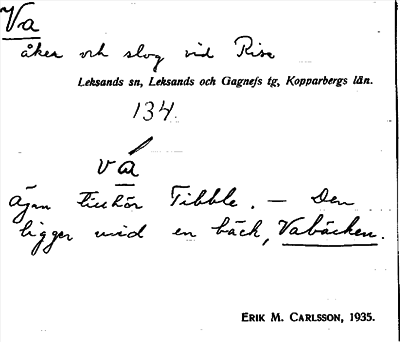 Va
åker och slog vid Risa
Leksands sn, Leksands och Gagnefs tg, Kopparbergs län.
134.
vá
Ägan tillhör Tibble. — Den
ligger invid en bäck, Vabäcken.
ERIK M. CARLSSON, 1935.